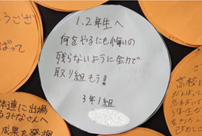 1.2年生へ
何をやるにも悔いの
残らないように全力で
取り組もう!
3年1組
うござ
ばって
高校
体達に出場
みなさんへ
成果を発揮